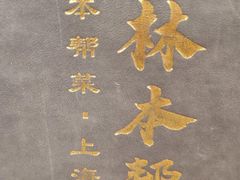 林本帮
本帮菜·上海